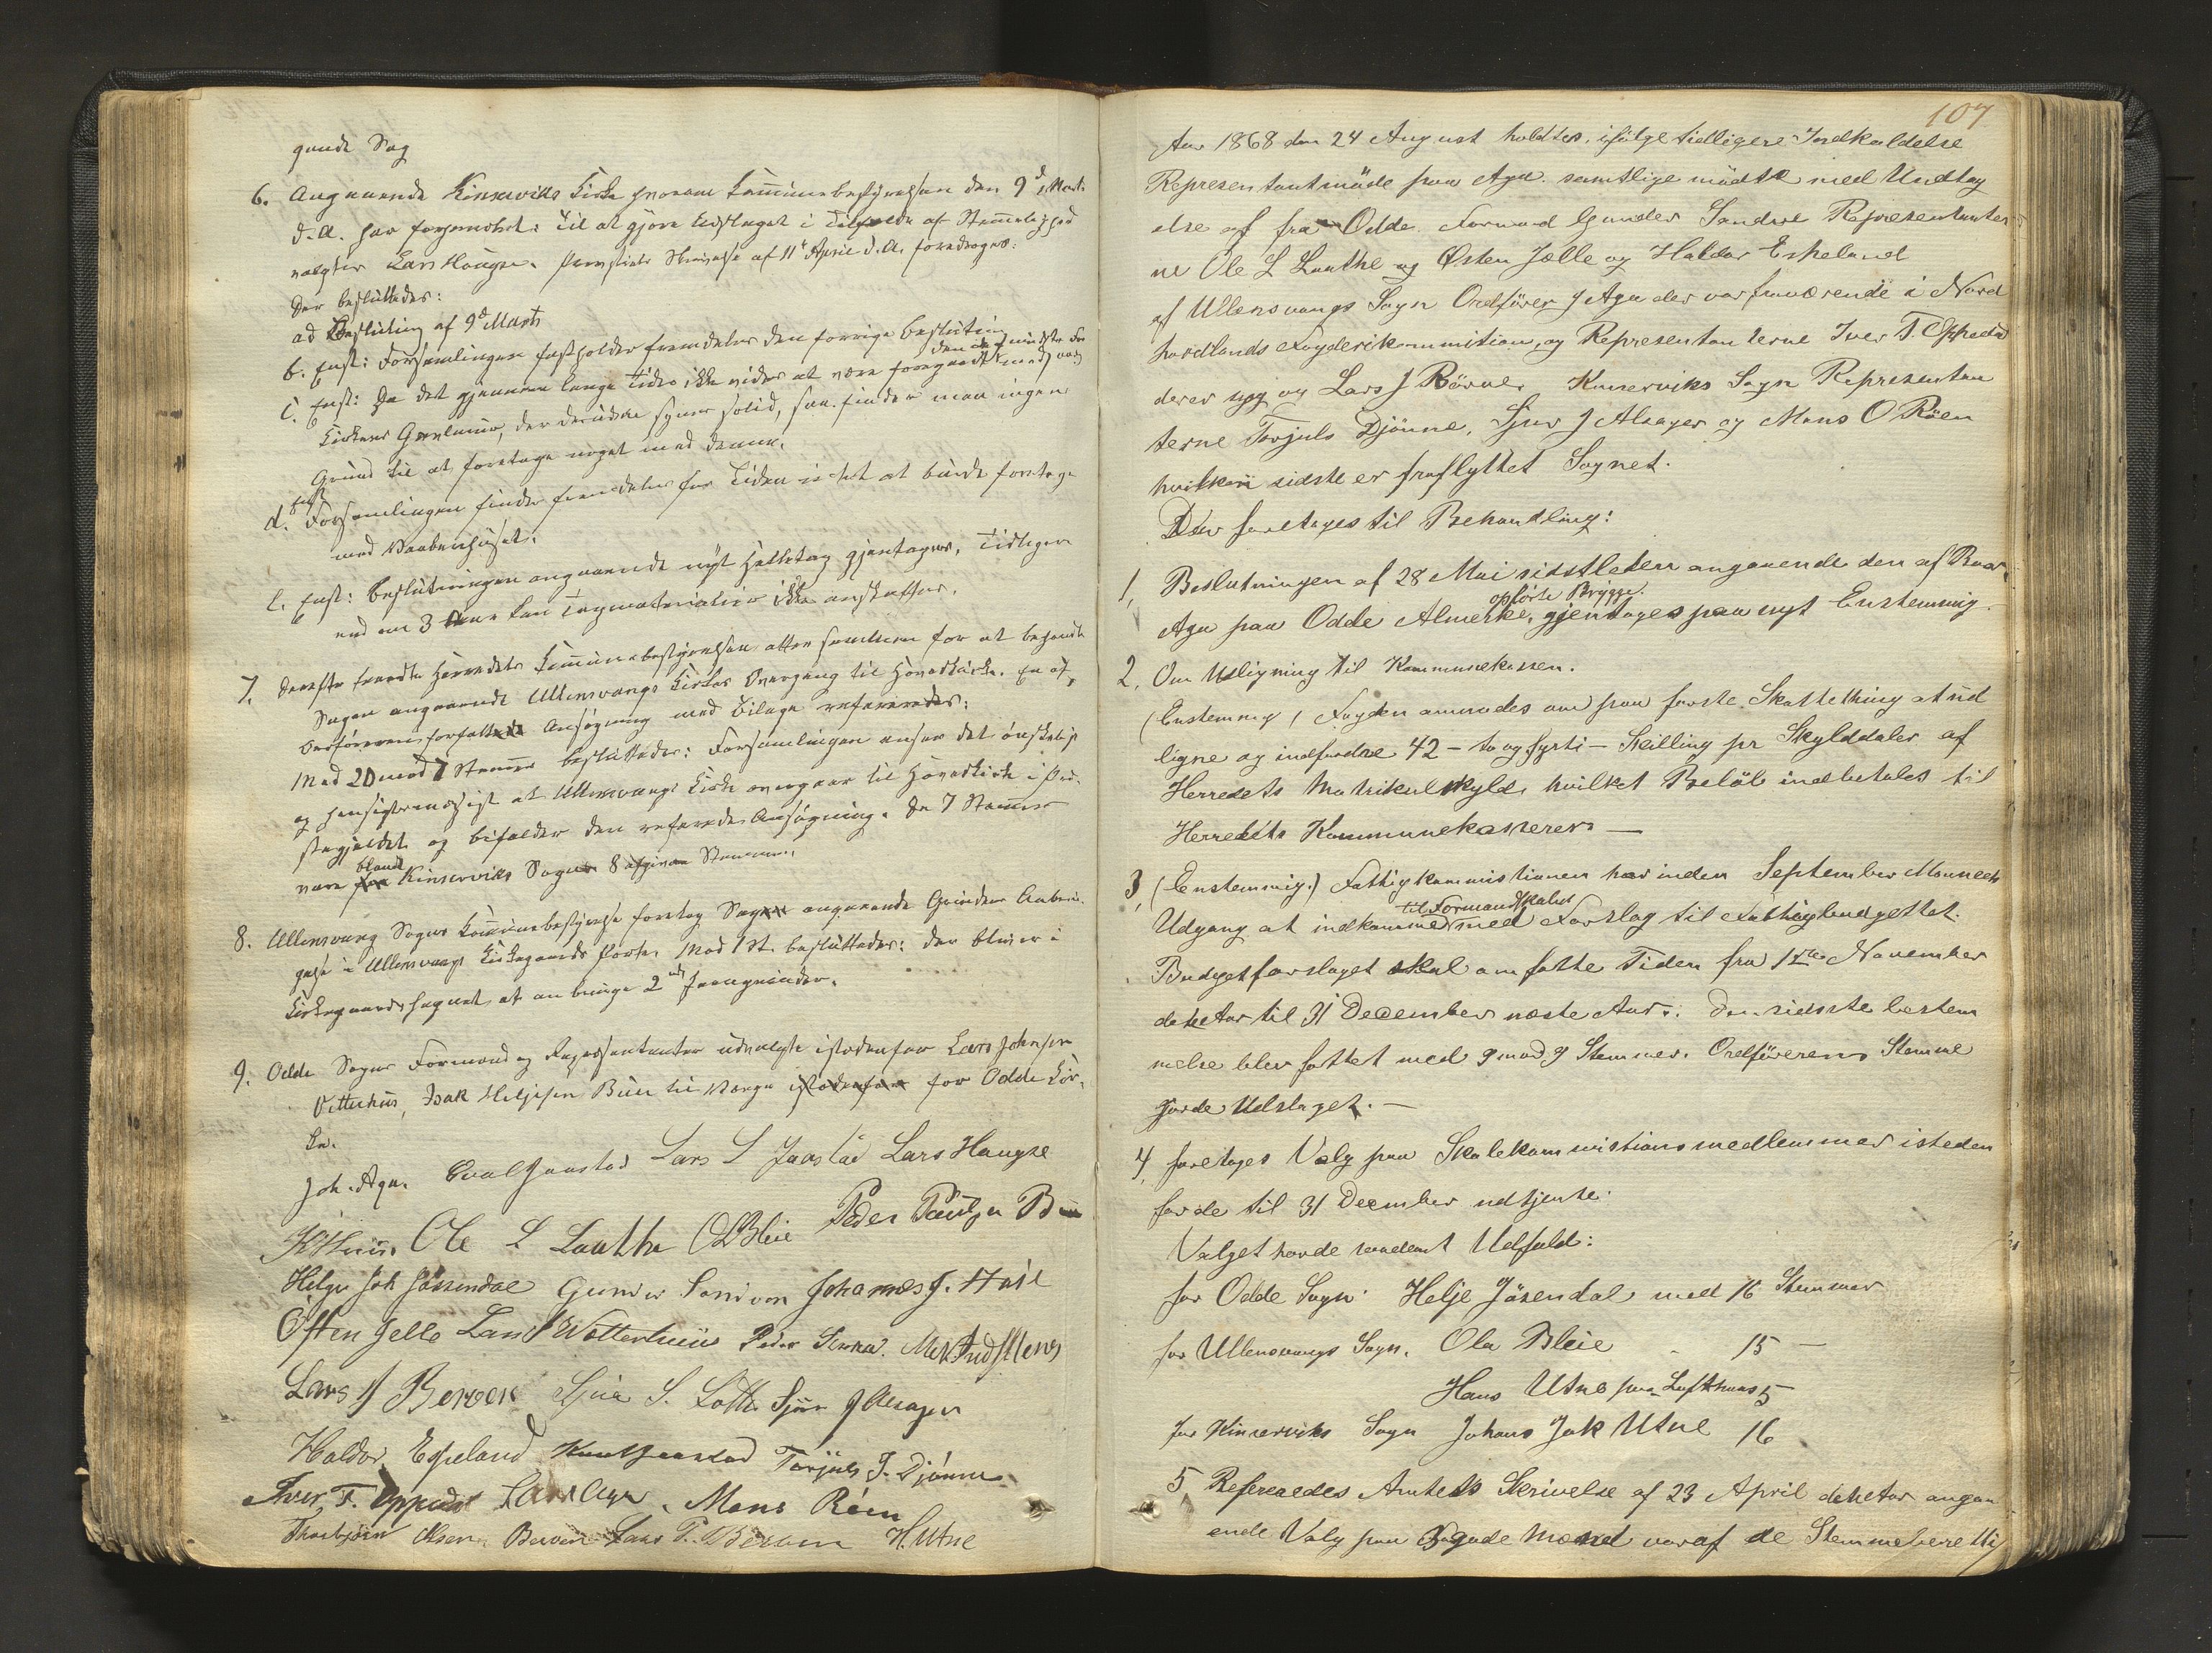 gende Sag
6. Angaaende Kinserviks Kirke hvorom Kommunebestyrelsen den 9d Marts
d.A. har forhandlet: Til at gjøre Udslaget i Tilfælde af Stemmelighed
valgtes Lars Haugse. Provstiets Skrivelse af 11te April d.A. foredroges:
Der besluttedes:
ad Beslutning af 9d Marts
b. Enst: Forsamlingen fastholder fremdeles den forrige Beslutning
c. Enst: Da det gjennem lange Tider ikke vides at være foregaaet den mindste Forandring med
Kirkens Grundmur, der desuden synes solid, saa finder man ingen
Grund til at foretage noget med denne.
d. Enst Forsamlingen finder fremdeles for Tiden intet at burde foretage
med Vaabenhuset.
e. Enst: Beslutningen angaaende nyt Helletag gjentages, tidligere
end om 3 Aar kan Tagmaterialier ikke anskaffes.
7. Derefter traadte Herredets Kommunebestyrelse atter sammen for at behandle
Sagen angaaende Ullensvangs Kirkes Overgang til Hovedkirke. En af
Ordføreren forfattede Ansøgning med Bilage refereredes:
Med 20 mod 7 Stemmer besluttedes: Forsamlingen anser det ønskeligt
og hensigtsmæssigt at Ullensvangs Kirke overgaar til Hovedkirke i Præ-
stegjeldet og bifalder den refererede Ansøgning. De 7 Stemmer
vare blandt Kinserviks Sogns 8 afgivne Stemmer.
8. Ullensvang Sogns Kommunebestyrelse foretog Sagen angaaende Grinders Anbrin-
gelse i Ullensvangs Kirkegaards Porter. Mod 1 St. besluttedes: Der bliver i
Kirkegaardshegnet at anbringe 2de Jerngrinder.
9. Odde Sogns Formænd og Repræsentanter udvalgte istedenfor Lars Johnsen
Vetterhus, Isak Helgesen Buer til Værge istedenfor for Odde Kir-
ke.
Joh. Aga. Lars L Jaastad Lars Haugse
Ole L Laathe O Bleie Peder
Helge Joh Jøsendal Gunder Sandven Johannes J.
Østen Jelle Lars J Wetterhuus Peder
Lars J Berven Sjur S. Lothe Sjur J Alsager
Haldor Espeland Torjuls J. Djønne
Iver T. Oppedal Lars Aga. Mons Røen
Thorbjørn Olsen Berven Lars T. Berven H. Utne
107
Aar 1868 den 24 August holdtes, ifølge tidligere Indkaldelse
Representantmøde paa Aga. samtlige mødte med Undtag
else af fra Odde. Formand Gunder Sandve Representanter
ne Ole L Laathe og Østen Jælle og Haldor Eskeland
af Ullensvangs Sogn Ordfører J Aga der var fraværende i Nord
hordlands Fogderikommition, og Representanterne Iver T. Oppedal
deres syg og Lars J Børve. Kinserviks Sogn Representan
terne Torjuls Djönne, Sjur J Alsager og Mons O Röen
hvilken sidste er fraflyttet Sognet.
Der foretages til Behandling:
1, Beslutningen af 28 Mai sidstleden angaaende den af Baar
Aga paa Odde Almerke opførte Brygge, gjentages paa nyt Enstemmig.
2, Om Udligning til Kommunekassen.
(Enstemmig) Fogden anmodes om paa første Skattething at ud
ligne og indfordre 42 - to og fyrti - Skilling pr Skylddaler af
Herredets Matrikulskyld, hvilket Beløb indbetales til
Herredets Kommunekasserer —
3, (Enstemmig.) Fattigkommistionen har inden September Maaneds
Udgang at indkomme til Formandskabet med Forslag til Fattigbudgettet.
Budgetforslaget skal omfatte Tiden fra 1ste November
dette Aar til 31 December næste Aar. Den sidsste bestem
melse blev fattet med 9 mod 9 Stemmer. Ordførerens Stemme
gjorde Udslaget. —
4, foretoges Valg paa Skolekommistionsmedlemmer isteden
for de til 31 December udtjente.
Valget havde saadant Udfald:
for Odde Sogn Helje Jösendal med 16 Stemmer
for Ullensvangs Sogn. Ola Bleie - 15 —
Hans Utne paa Lofthuus 5 —
for Kinserviks Sogn Johans Jak Utne 16
5, Refereredes Amtets Skrivelse af 23 April dette Aar angaa
ende Valg paa 3 gode Mænd voraf de Stemmeberettig